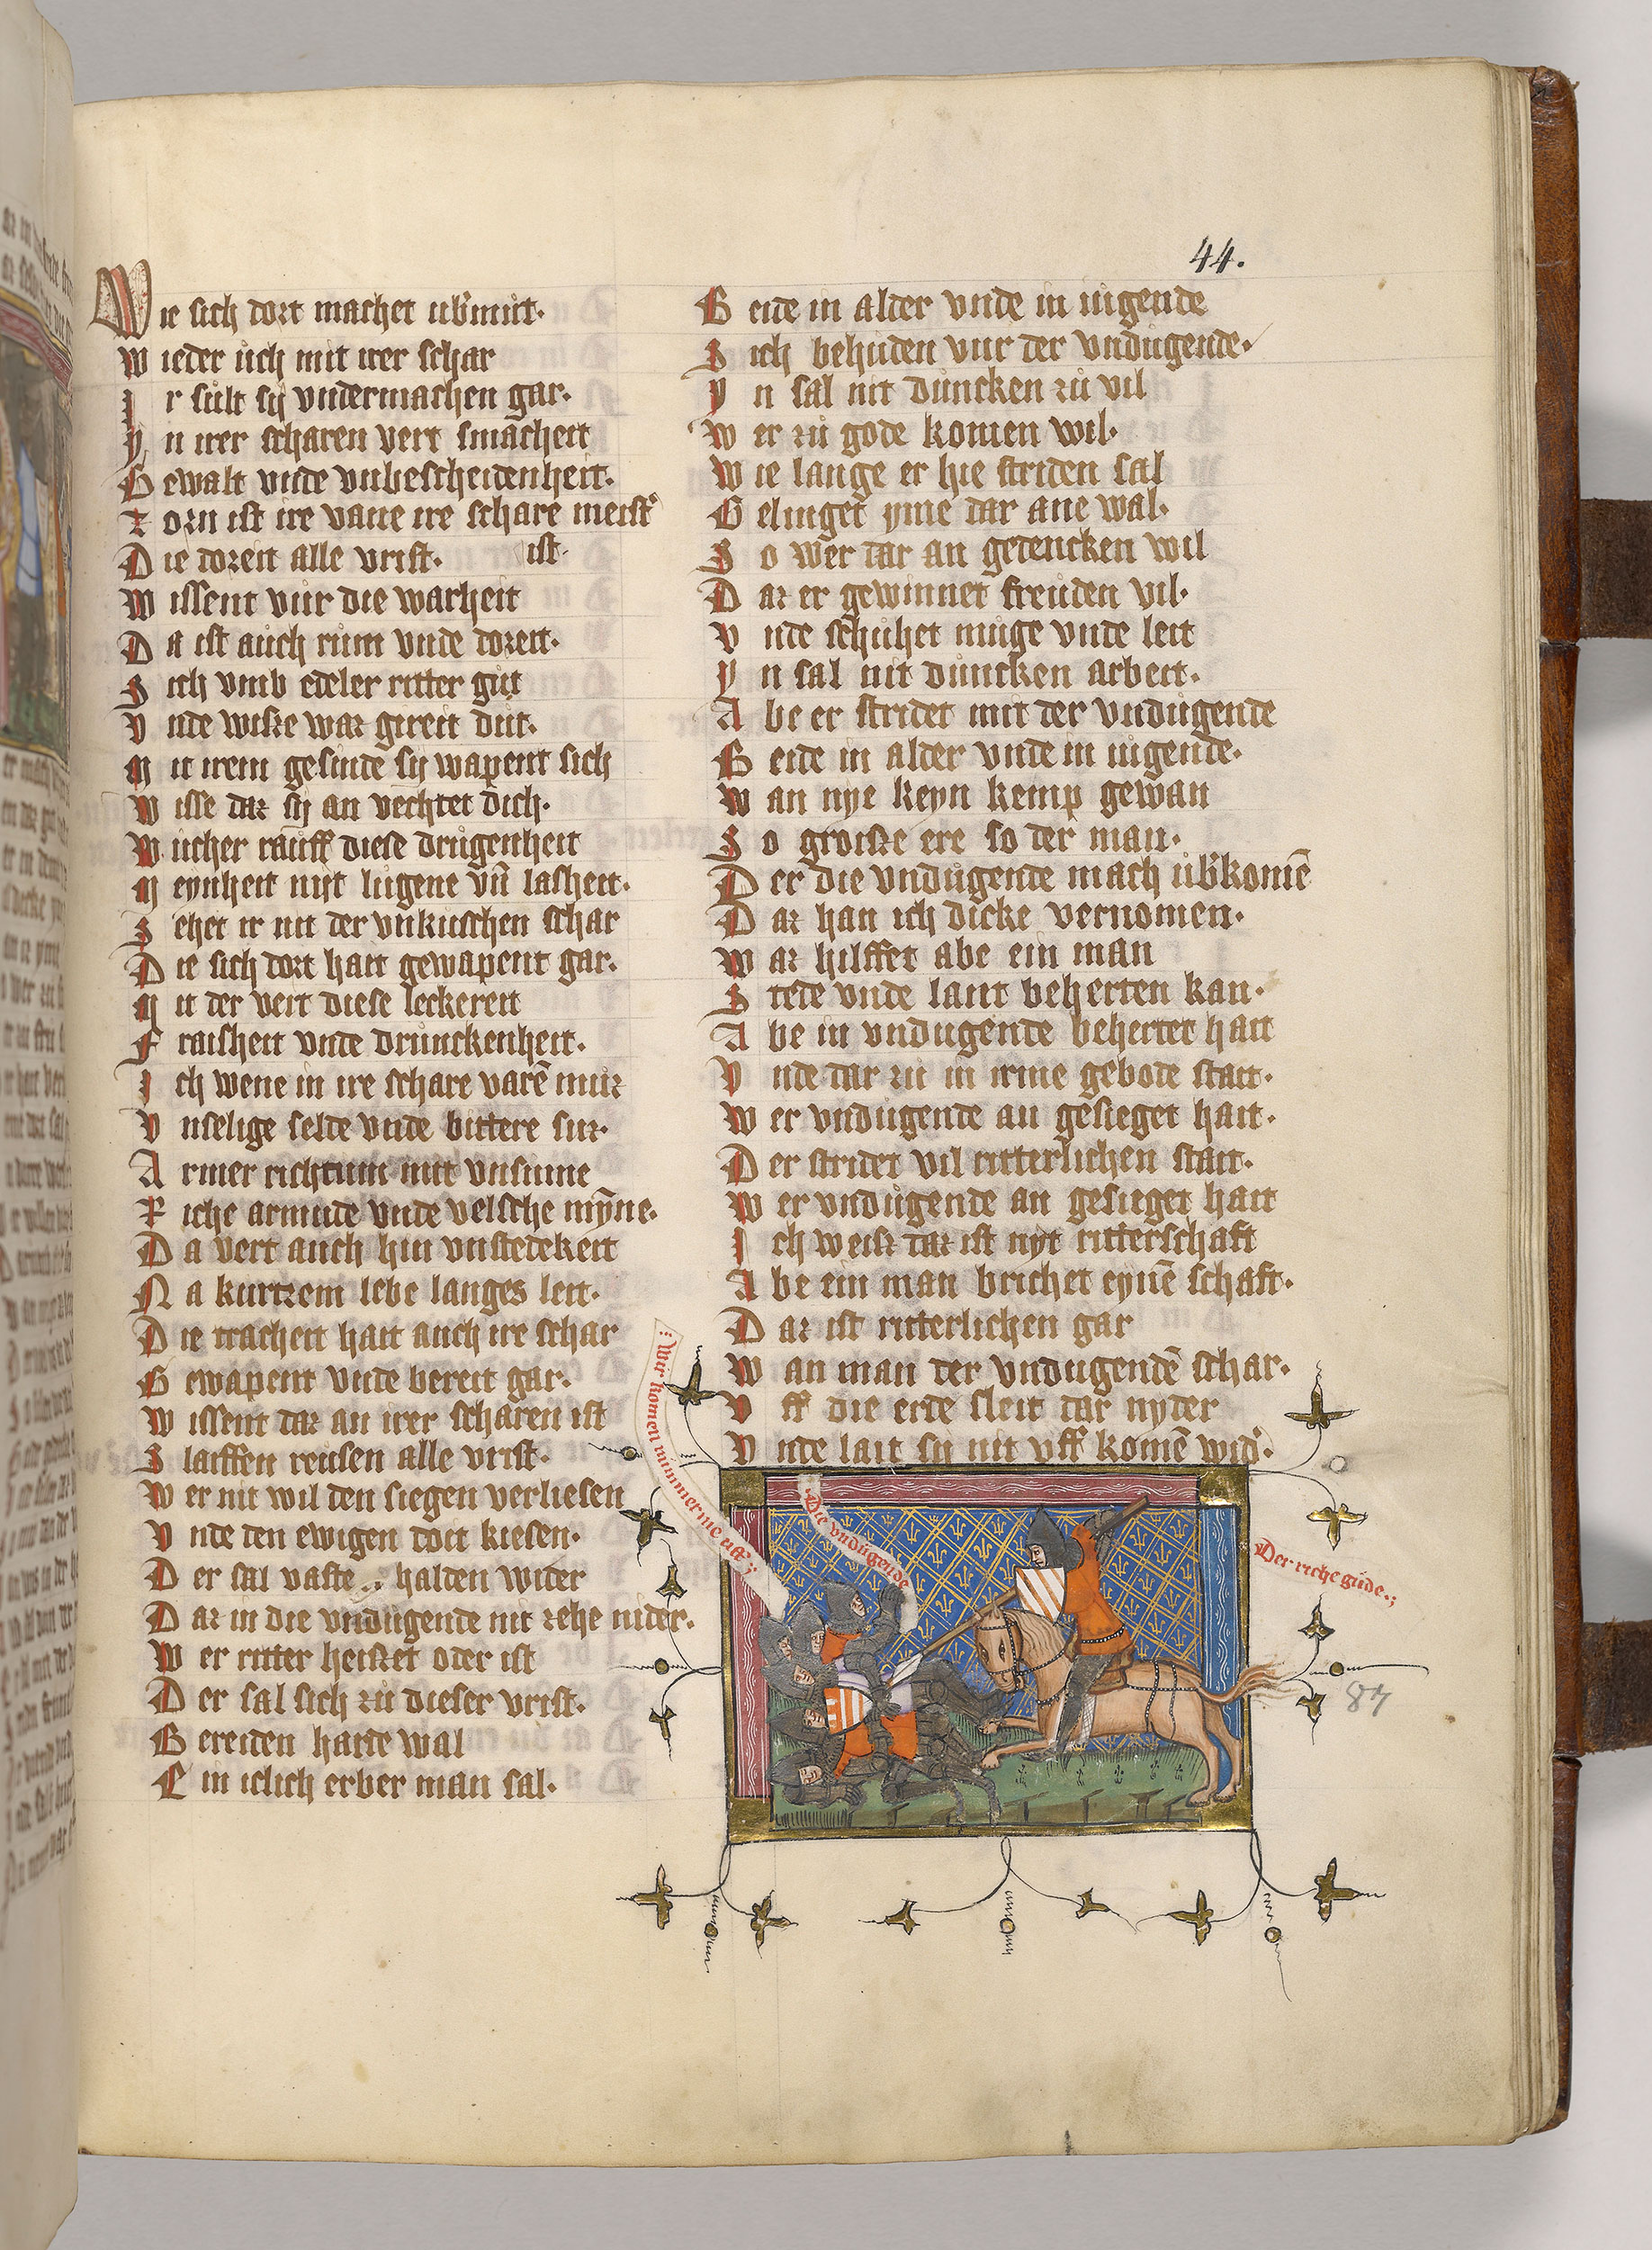 44.
Wie sich dort machet ub̉muͦt·
Wieder uͤch mit irer schar
Ir suͤlt sij vndermachen gar·
Yn irer scharen vert smacheit
Gewalt vnde vnbescheidenheit·
Zorn ist ire vane ire schare meist̉
Die doreit alle vrist· ist·
Wissent vuͤr die warheit
Da ist auͤch ruͤm vnde doreit·
Sich vmb edeler ritter guͤt
Vnde wiße waz gireit duͤt·
Mit irem gesinde sij wapent sich
Wisse daz sij an vechtet dich·
Wucher rauͤff diese druͤgenheit
Meynheit nijt luͤgene vn̄ lasheit·
Sehet ir nit der vnkuschen schar
Die sich dort hait gewapent gar·
Mit der vert diese leckereit
Fraisheit vnde druͤnckenheit·
Ich wene in ire schare varē muͤz
Vnselige selde vnde bittere suz·
Armer richtum mit vnsinne
Riche armude vnde velsche mȳne·
Da vert auch hin vnstedekeit
Na kurtzem lebe langes leit·
Die tracheit hait auch ire schar
Gewapent vnde bereit gar·
Wissent daz an irer scharen ist
Slaiffen reusen alle vrist·
Wer nit wil den siegen verliesen
Vnde den ewigen doit kiesen·
Der sal vaste .. halden wider
Daz in die vnduͤgende nit zehe nider·
Wer ritter heißet oder ist
Der sal sich zuͤ dieser vrist·
Bereiden harte wal
Ein iclich erber man sal·
Beide in alder vnde in iugende
Sich behuͤden vur der vnduͤgende·
Yn sal nit duͤncken zuͤ vil
Wer zuͤ gode komen wil·
Wie lange er hie striden sal
Gelinget yme dar ane wal·
So wer dar an gedencken wil
Daz er gewinnet freuͤden vil·
Vnde schuͤhet muͤge vnde leit
Yn sal nit duͤncken arbeit·
Abe er stridet mit der vnduͤgende
Beide in alder vnde in iugende·
Wan nye keyn kemp gewan
So groiße ere so der man·
Der die vnduͤgende mach uͤb̉komē
Daz han ich dicke vernomen·
Waz hilffet abe ein man
Stede vnde lant beherten kan·
Abe in vndugende behertet hait
Vnde dar zu in irme gebode stait·
Wer vndugende an gesieget hait·
Der stridet vil ritterlichen stait·
Wer vnduͤgende an gesieget hait
Ich weiß daz ist nyt ritterschaft
Abe ein man brichet eynē schaft·
Daz ist ritterlichen gar
Wan man der vndugendē schar·
Vff die erde sleit dar nyder
Vnde lait sij nit vff komē wid̉·
Wir komen nimmer me uff
Die vnduͤgende
Der riche guͤde
87